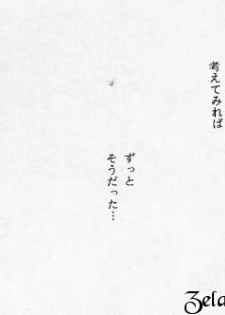 考えてみれば
ずっと
そうだった…
Zela